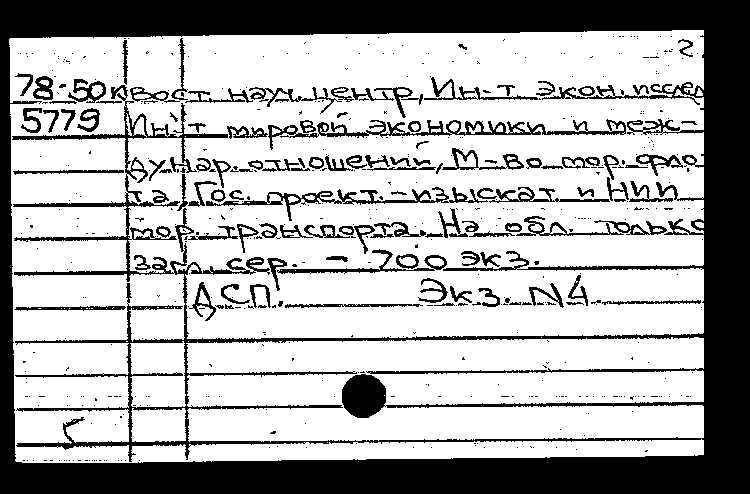 2.
78-50к вост. науч. центр, Ин-т экон. исслед
5779 Ин-т мировой экономики и меж-
дунар. отношений, М-во мор. фло-
та, Гос. проект.-изыскат. и НИИ
мор. транспорта. На обл. только
загл. сер. - 700 экз.
ДСП. Экз. N4.
5